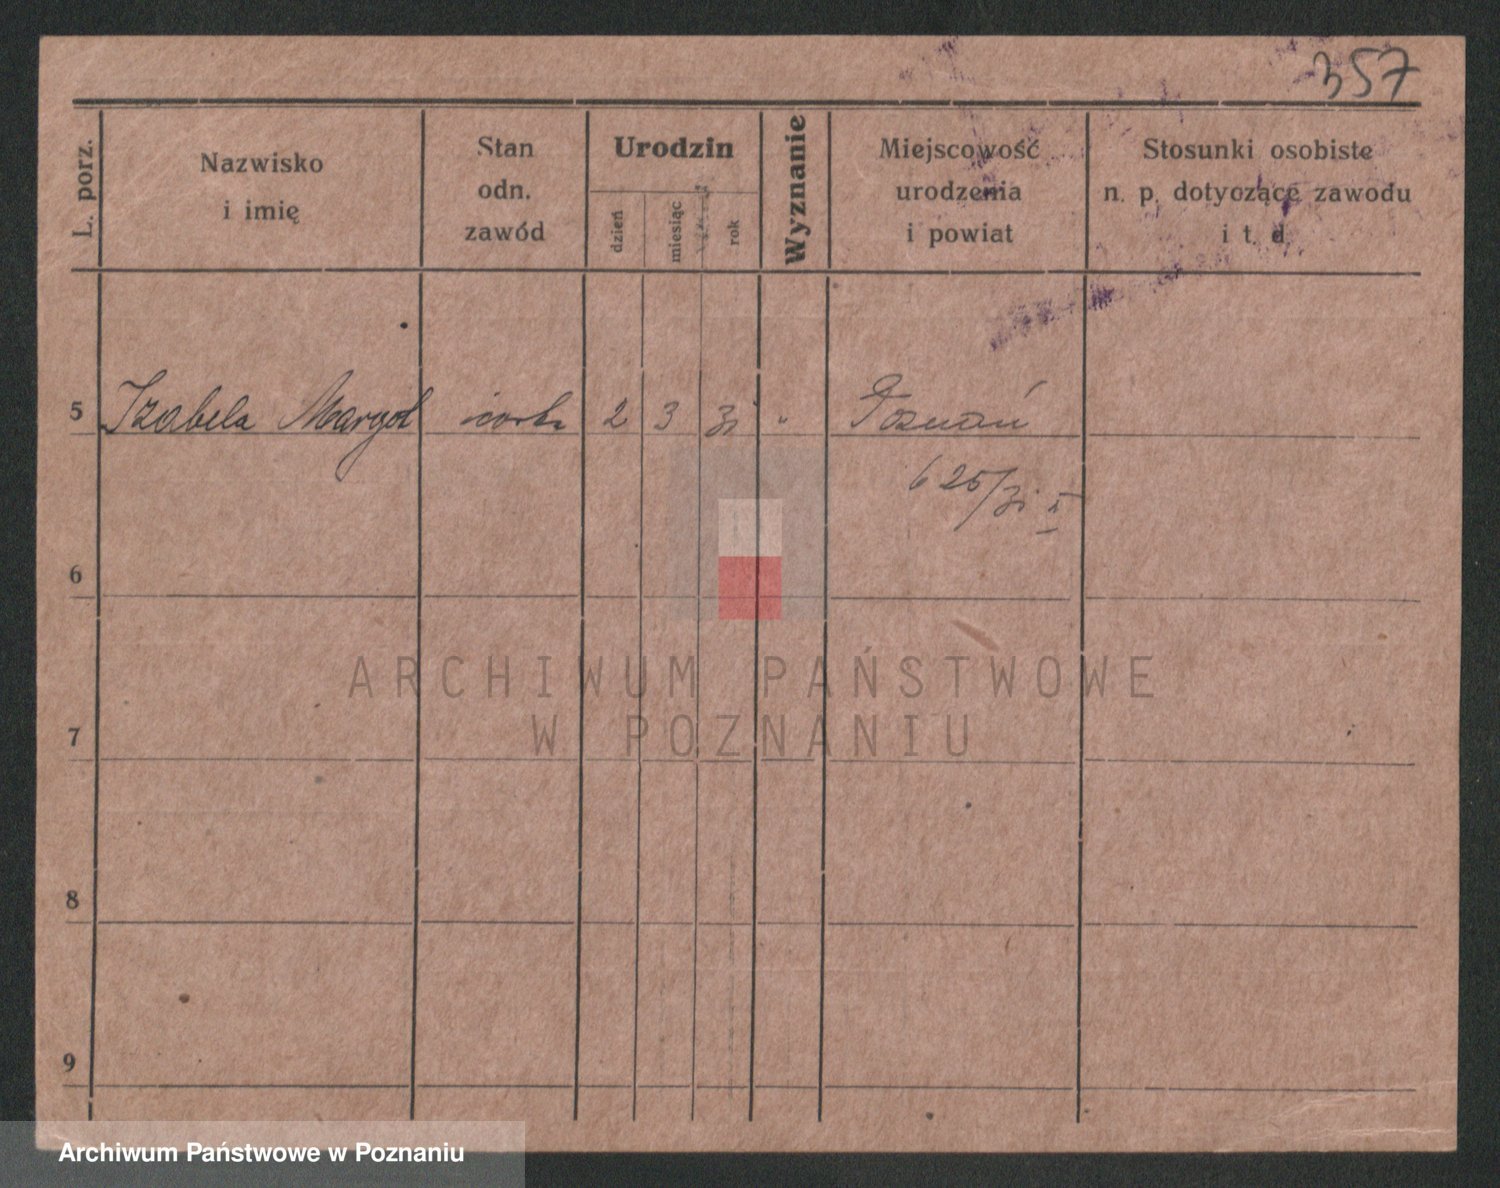 357
L. porz.
Nazwisko
i imię
Stan
odn.
zawód
Urodzin
dzień
miesiąc
rok
Wyznanie
Miejscowość
urodzenia
i powiat
Stosunki osobiste
n. p. dotyczące zawodu
i t. d.
5 Izabela Margot córka 2 3 31 " Poznań
625/31 II
6
7
8
9
ARCHIWUM PAŃSTWOWE
W POZNANIU
Archiwum Państwowe w Poznaniu